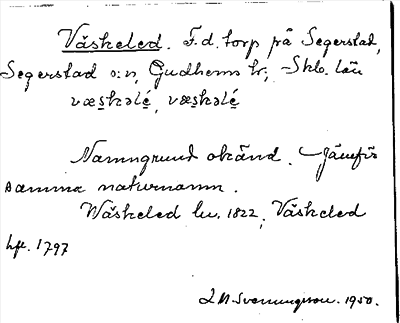 Väskeled. F.d. torp på Segerstad,
Segerstad s:n, Gudhems hd; Skb. län
væskəlé, væskəlé
Namngrund okänd. Jämför
samma naturnamn.
Wäskeled hu. 1822, Väskeled
hfl. 1797
Svenningsson. 1950.